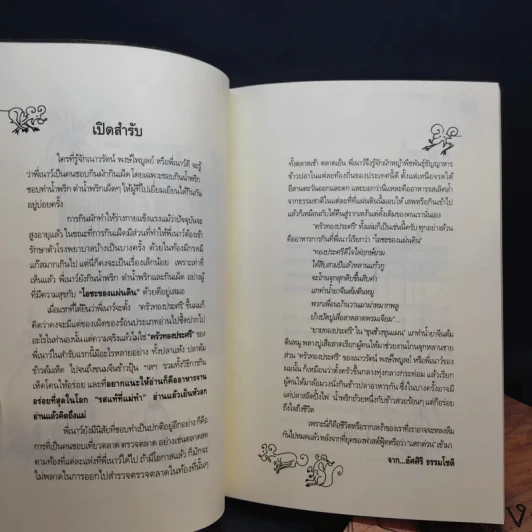 เปิดสำรับ
ใครที่รู้จักเนาวรัตน์ พงษ์ไพบูลย์ หรือพี่เนาว์ดี จะรู้
ว่าพี่เนาว์เป็นคนชอบกินผักกินเผ็ด โดยเฉพาะชอบกินน้ำพริก
ชอบทำน้ำพริก ตำน้ำพริกเผ็ดๆ ให้ผู้ที่ไปเยี่ยมเยียนได้กินกัน
อยู่บ่อยครั้ง
การกินผักทำให้ร่างกายแข็งแรงแม้ว่าปัจจุบันจะ
สูงอายุแล้ว ในขณะที่การกินเผ็ดมีส่วนที่ทำให้พี่เนาว์ต้องเข้า
รักษาตัวโรงพยาบาลบ้างเป็นบางครั้ง ด้วยในท้องมีกรดมี
แก๊สมากเกินไป แต่นี่ก็คงจะเป็นเรื่องเล็กน้อย เพราะเท่าที่
เห็นแล้ว พี่เนาว์ยังกินน้ำพริก ตำน้ำพริกและกินเผ็ด อย่างผู้
ที่มีความสุขกับ "โอชะของแผ่นดิน" ด้วยดีอยู่เสมอ
เมื่อแรกที่ได้ยินว่าพี่เนาว์จะตั้ง "ครัวทองประศรี" ขึ้นผมก็
คิดว่าคงจะมีแต่ของเผ็ดของร้อนประเภทอ่านไปซี้ดปากไป
อะไรในทำนองนั้น แต่ความจริงแล้วไม่ใช่ "ครัวทองประศรี" ของ
พี่เนาว์ในสำรับแรกนี้มีอะไรหลายอย่าง ทั้งปลาแห้ง ปลาต้ม
ข้าวต้มเห็ด ไปจนถึงขนมจีนข้าวปุ้น ฯลฯ รวมทั้งวิธีการกิน
เห็ดโคนให้อร่อย และที่อยากแนะให้อ่านก็คืออาหารจาน
อร่อยที่สุดในโลก "รสแท้ที่แม่ทำ" อ่านแล้วเป็นหัวอก
อ่านแล้วคิดถึงแม่
พี่เนาว์ยังมีนิสัยที่ชอบทำเป็นปกติอยู่อีกอย่าง ก็คือ
การที่เป็นคนชอบเที่ยวตลาด ตรวจตลาด อย่างเช่นตลาดสด
ตามท้องที่แต่ละแห่งที่พี่เนาว์ได้ไป ถ้ามีโอกาสแล้ว ก็มักจะ
ไม่พลาดในการออกไปสำรวจตรวจตลาดในท้องที่นั้นๆ
ทั้งตลาดเช้า ตลาดเย็น พี่เนาว์จึงรู้จักผักหญ้าพืชพันธุ์ธัญญาหาร
ข้าวปลาในแต่ละท้องถิ่นของประเทศนี้ดี ตั้งแต่เหนือจรดใต้
อีสานตะวันออกและตก และบอกว่านี่แหละคืออาหารรสเลิศล้ำ
จากธรรมชาติในแต่ละที่ที่แผ่นดินนี้มอบให้ เสพหรือกินเข้าไป
แล้วก็เหมือนกับได้คืนสู่รากเหง้าแต่ดั้งเดิมของคนเรานั่นเอง
"ครัวทองประศรี" ทั้งเล่มก็เป็นเช่นนี้ครับ ทุกอย่างล้วน
คืออาหารการกินที่พี่เนาว์เรียกว่า "โอชะของแผ่นดิน"
"ทองประศรีดีใจได้ฤกษ์ยาม
ให้สืบสามยืนแล้วหลานแก้วกู
จะโกนจุกสุกดิบขึ้นสิบค่ำ
แกทำน้ำยาจีนต้มตีนหมู
พวกเพื่อนบ้านวานมาผ่าหมากพลู
บ้างปัดปูเสื่อสาดลาดพรมเจียม"...
"ยายทองประศรี" ใน "ขุนช้างขุนแผน" แกทำน้ำยาจีนต้ม
ตีนหมู พลางปูเสื่อสาดเรียกผู้คนให้มาช่วยงานโกนจุกหลานชาย
ส่วน "ครัวทองประศรี" ของเนาวรัตน์ พงษ์ไพบูลย์ หรือพี่เนาว์ของ
ผมนั้น ก็เหมือนว่าจะตั้งครัวขึ้นกลางทุ่งกลางกระท่อม แล้วเรียก
ผู้คนให้มาล้อมวงนั่งกินข้าวปลาอาหารกัน ซึ่งในบางครั้งอาจมี
แค่ปลาสลิดปิ้งไฟ น้ำพริกถ้วยหนึ่งกับข้าวสวยร้อนๆ แต่ก็อร่อย
ถึงใจถึงชีวิต
เพราะนี่ก็คือชีวิตหรือรากเหง้าของเราที่เราอาจจะหลงลืม
กันไปหมดแล้ว หลังจากที่ยุคของฟาสต์ฟู้ดหรือว่า "แดกด่วน" เข้ามา
จาก...อัศศิริ ธรรมโชติ